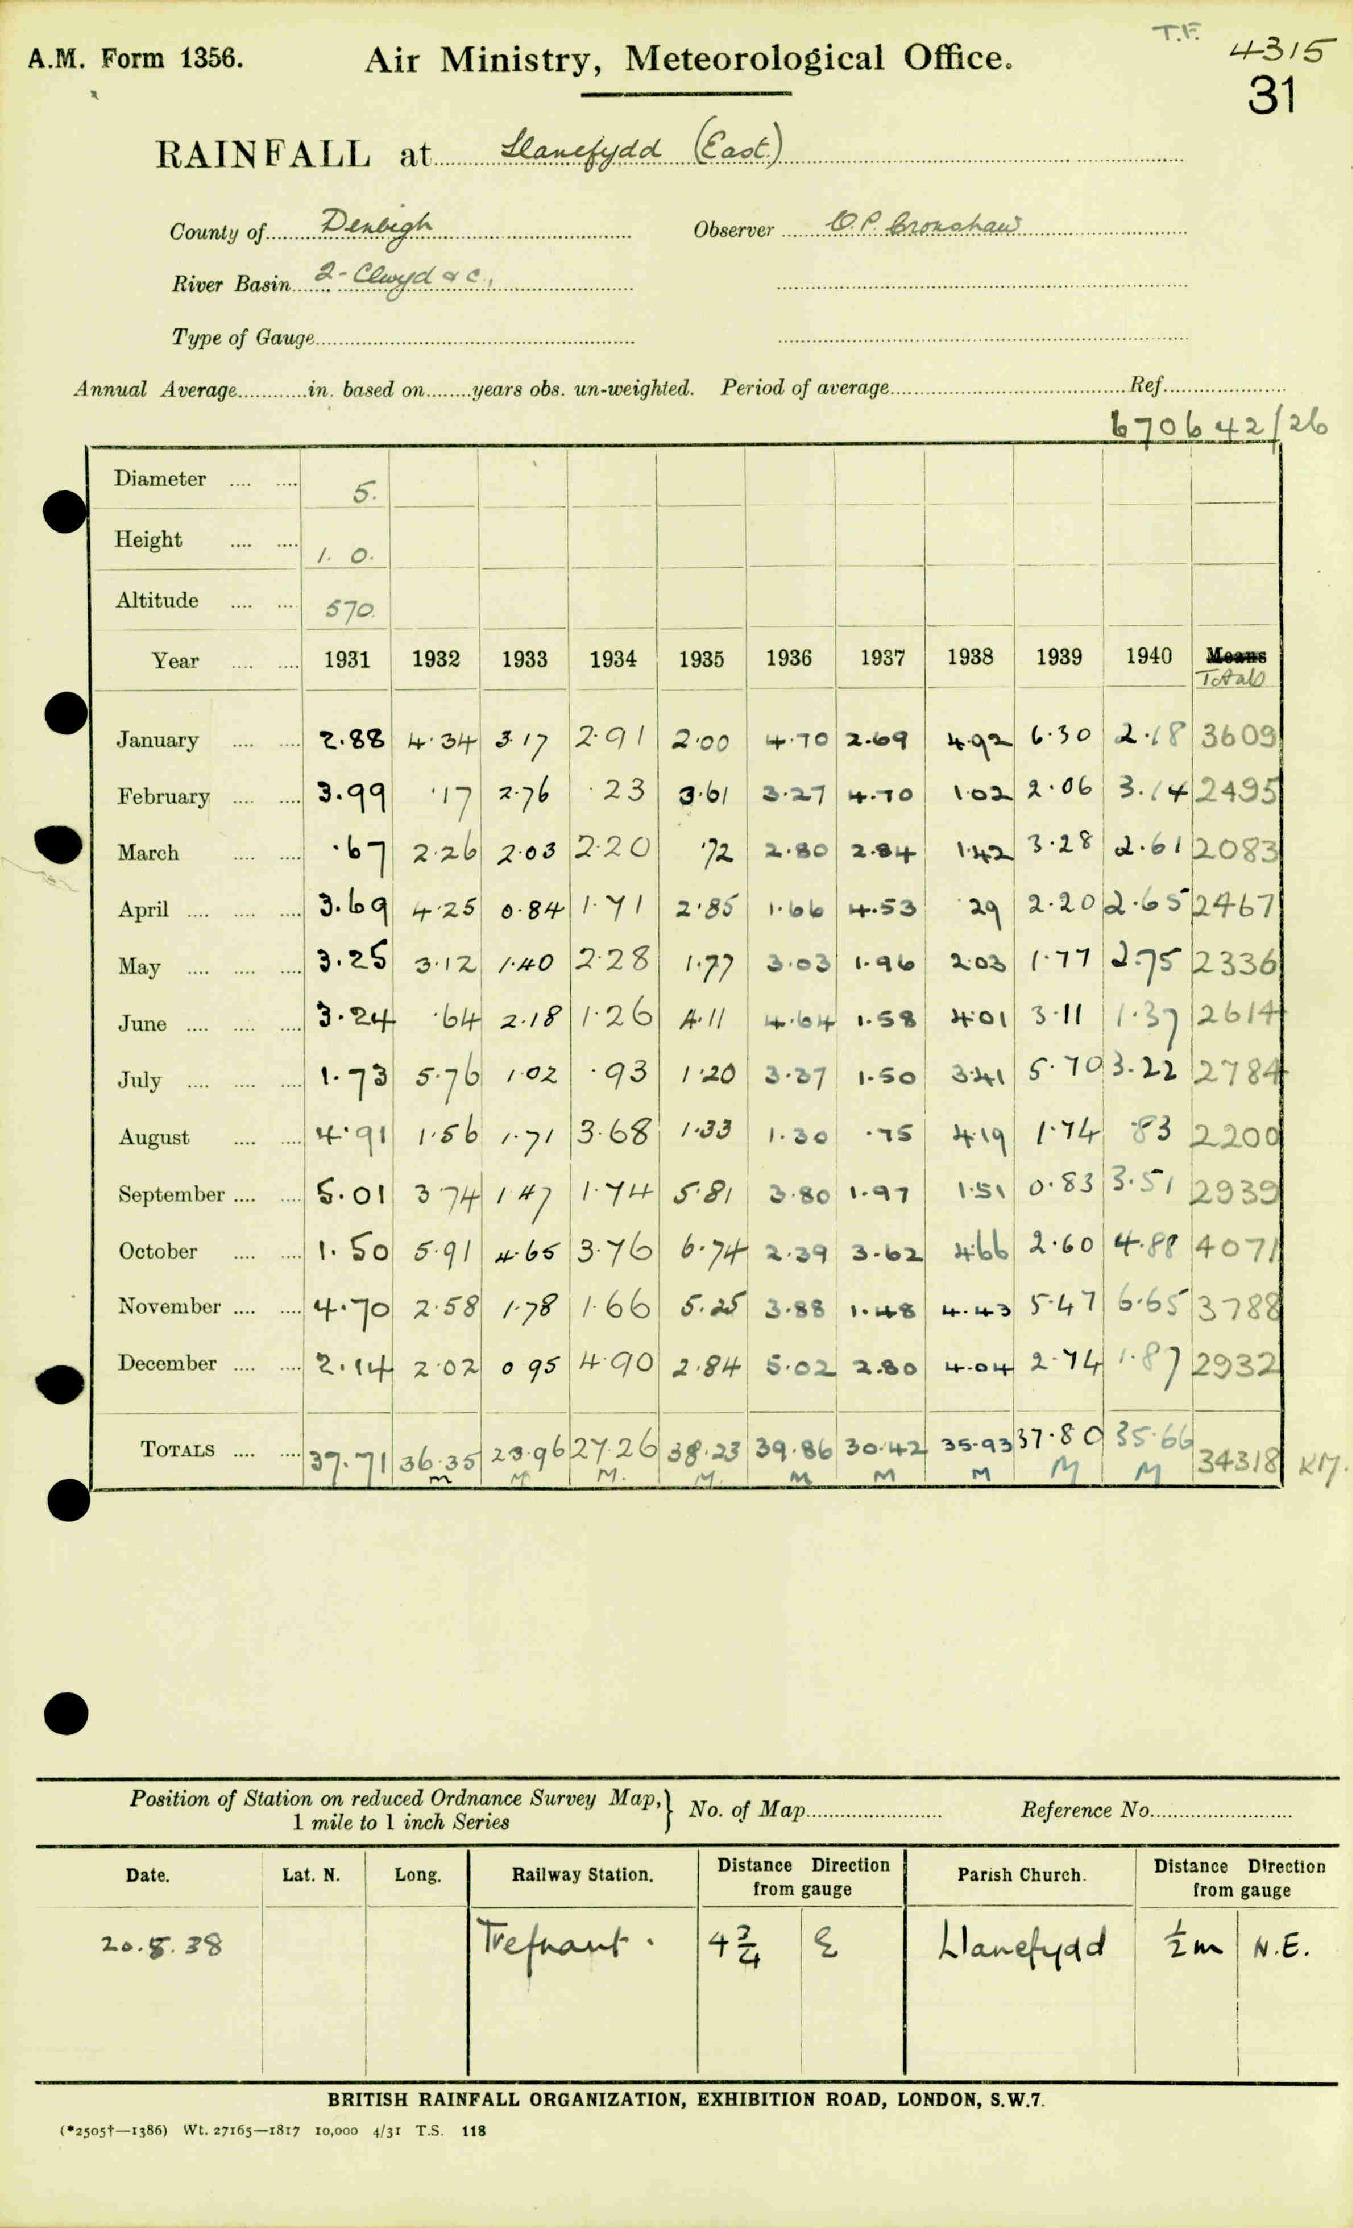 T.F.
4315
A.M. Form 1356. Air Ministry, Meteorological Office.
31
RAINFALL at Llanefydd (East)
County of Denbigh Observer O.P. Cronshaw
River Basin 2 - Clwyd & c.,
Type of Gauge
Annual Average in. based on years obs. un-weighted. Period of average Ref.
670642/26
Diameter 5.
Height 1. 0.
Altitude 570.
Year 1931 1932 1933 1934 1935 1936 1937 1938 1939 1940 Means
Totals
January 2.88 4.34 3.17 2.91 2.00 4.70 2.69 4.92 6.30 2.18 3609
February 3.99 .17 2.76 .23 3.61 3.27 4.70 1.02 2.06 3.14 2495
March .67 2.26 2.03 2.20 .72 2.80 2.84 1.42 3.28 2.61 2083
April 3.69 4.25 0.84 1.71 2.85 1.66 4.53 .29 2.20 2.65 2467
May 3.25 3.12 1.40 2.28 1.77 3.03 1.96 2.03 1.77 2.75 2336
June 3.24 .64 2.18 1.26 4.11 4.64 1.58 4.01 3.11 1.37 2614
July 1.73 5.76 1.02 .93 1.20 3.37 1.50 3.41 5.70 3.22 2784
August 4.91 1.56 1.71 3.68 1.33 1.30 .75 4.19 1.74 .83 2200
September 5.01 3.74 1.47 1.74 5.81 3.80 1.97 1.51 0.83 3.51 2939
October 1.50 5.91 4.65 3.76 6.74 2.39 3.62 4.66 2.60 4.88 4071
November 4.70 2.58 1.78 1.66 5.25 3.88 1.48 4.43 5.47 6.65 3788
December 2.14 2.02 0.95 4.90 2.84 5.02 2.80 4.04 2.74 1.87 2932
TOTALS 37.71 36.35 23.96 27.26 38.23 39.86 30.42 35.93 37.80 35.66 34318 KM.
M M M. M. M M M M M
Position of Station on reduced Ordnance Survey Map,} No. of Map Reference No.
1 mile to 1 inch Series
Date. Lat. N. Long. Railway Station. Distance Direction from gauge Parish Church. Distance Direction from gauge
20.8.38 Trefnant. 4 3/4 E Llanefydd ½ m N.E.
BRITISH RAINFALL ORGANIZATION, EXHIBITION ROAD, LONDON, S.W.7.
(*2505†—1386) Wt. 27165—1817 10,000 4/31 T.S. 118